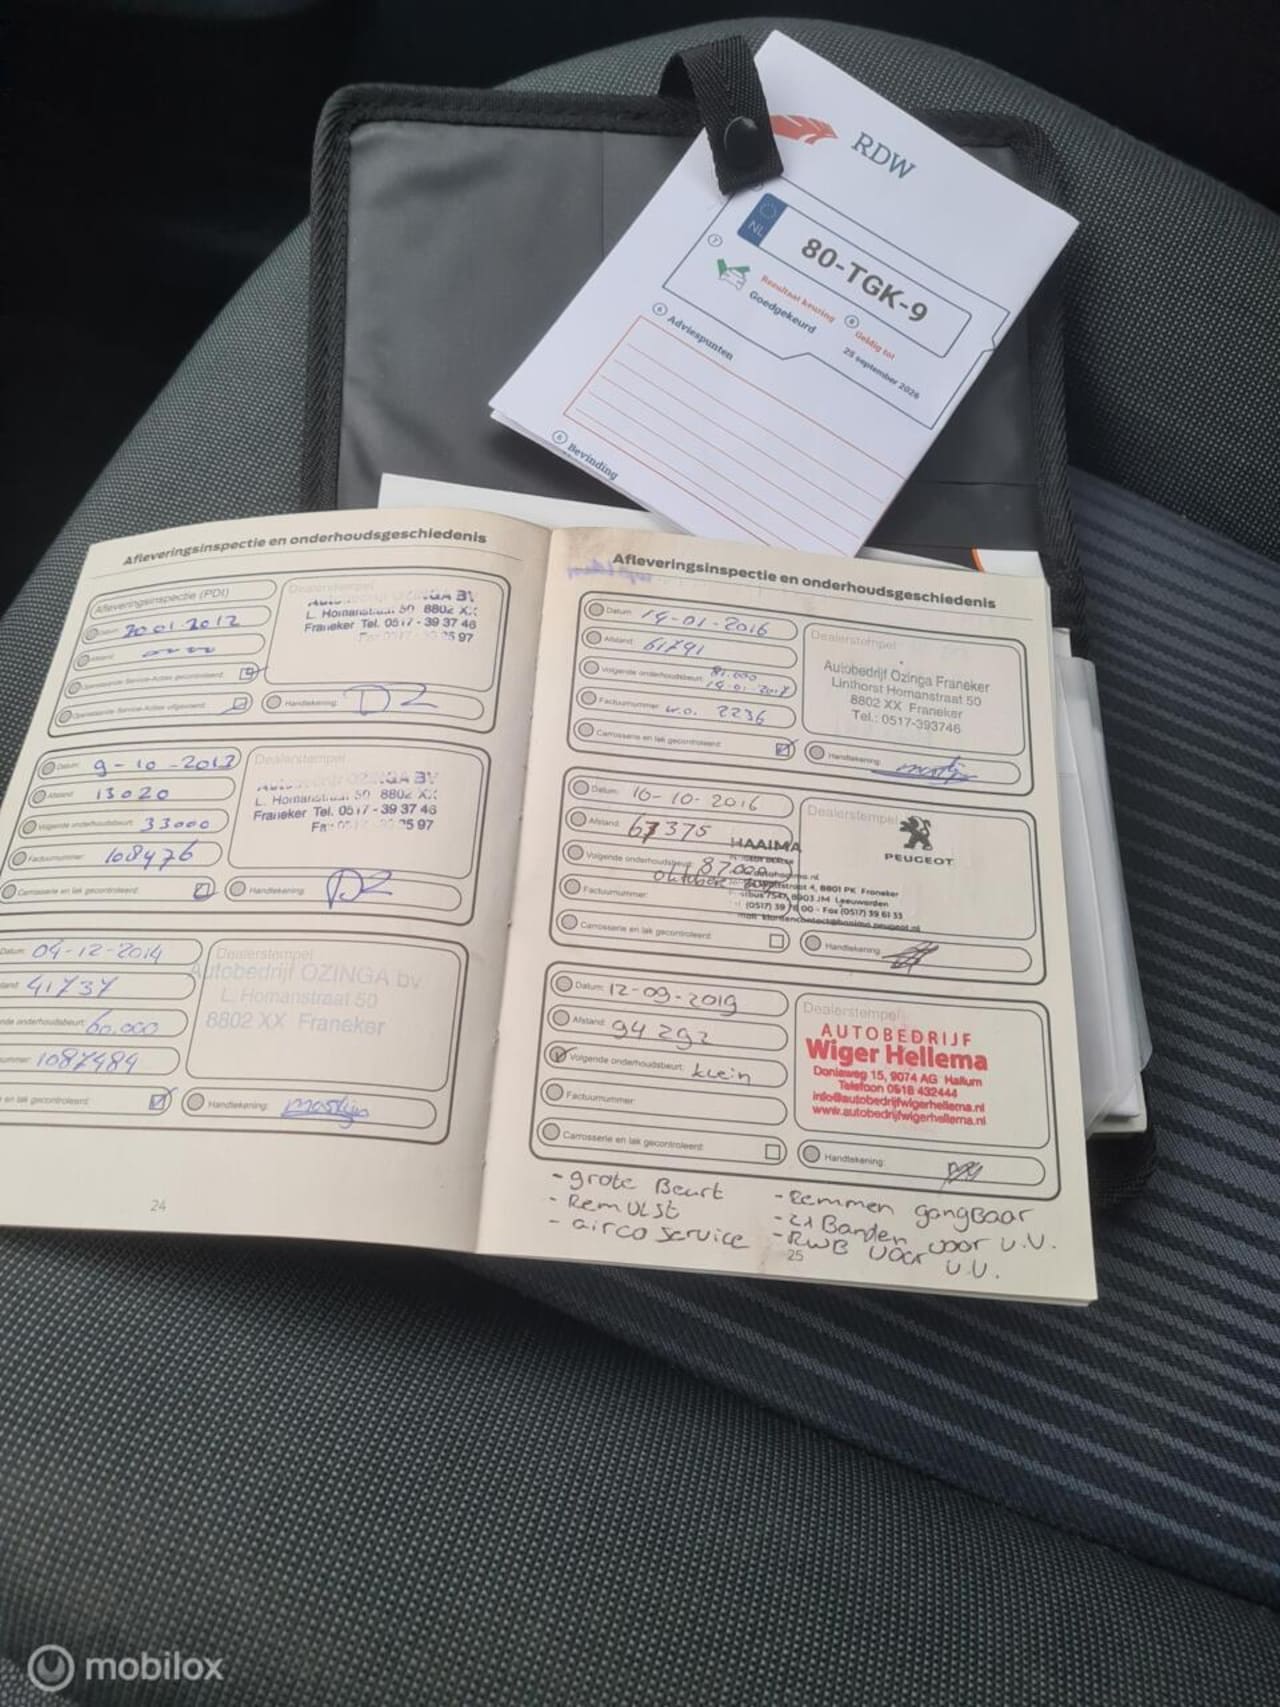 RDW
NL
80-TGK-9
Resultaat keuring
Goedgekeurd
Geldig tot
25 september 2026
Adviespunten
Bevinding
Afleveringsinspectie en onderhoudsgeschiedenis
Afleveringsinspectie (PDI)
20 01 2012
Openstaande Service-Acties gecontroleerd:
Openstaande Service-Acties uitgevoerd:
Handtekening:
Dealerstempel
OZINGA BV
L. Homanstraat 50 8802 XX
Franeker Tel. 0517 - 39 37 46
Datum: 9-10-2012
Afstand: 13020
Volgende onderhoudsbeurt: 33000
Factuurnummer: 108476
Carrosserie en lak gecontroleerd:
Handtekening:
Dealerstempel
OZINGA BV
L. Homanstraat 50 8802 XX
Franeker Tel. 0517 - 39 37 46
Datum: 04-12-2014
41737
onderhoudsbeurt: 60.000
1087484
en lak gecontroleerd:
Handtekening:
Dealerstempel
Autobedrijf OZINGA bv
L. Homanstraat 50
8802 XX Franeker
24
Afleveringsinspectie en onderhoudsgeschiedenis
Datum: 14-01-2016
Afstand: 61791
Volgende onderhoudsbeurt: 81.000
Factuurnummer: w.o. 2236
Carrosserie en lak gecontroleerd:
Handtekening:
Dealerstempel
Autobedrijf Ozinga Franeker
Linthorst Homanstraat 50
8802 XX Franeker
Tel.: 0517-393746
Datum: 10-10-2016
Afstand: 67375
Volgende onderhoudsbeurt: 87.000
oktober
Factuurnummer:
Carrosserie en lak gecontroleerd:
Handtekening
Dealerstempel
PEUGEOT
HAAIMA
4, 8801 PK Franeker
8903 JM Leeuwarden
(0517) 39 76 00 - Fax (0517) 39 61 33
Datum: 12-09-2019
Afstand: 94292
Volgende onderhoudsbeurt: klein
Factuurnummer:
Carrosserie en lak gecontroleerd:
Handtekening:
Dealerstempel
AUTOBEDRIJF
Wiger Hellema
Doniaweg 15, 9074 AG Hallum
Telefoon 0518 432444
info@autobedrijfwigerhellema.nl
www.autobedrijfwigerhellema.nl
- grote Beurt
- Remolst
- airco service
- Remmen gangbaar
- 2x Banden voor v.v.
- RWB voor v.v.
25
mobilox